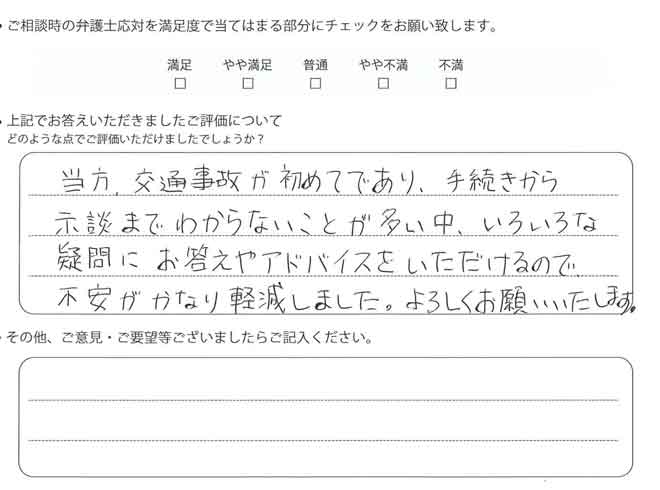 ・ご相談時の弁護士応対を満足度で当てはまる部分にチェックをお願い致します。
満足 やや満足 普通 やや不満 不満
□ □ □ □ □
・上記でお答えいただきましたご評価について
どのような点でご評価いただけましたでしょうか？
当方、交通事故が初めてであり、手続きから
示談までわからないことが多い中、いろいろな
疑問にお答えやアドバイスをいただけるので、
不安がかなり軽減しました。よろしくお願いいたします。
・その他、ご意見・ご要望等ございましたらご記入ください。